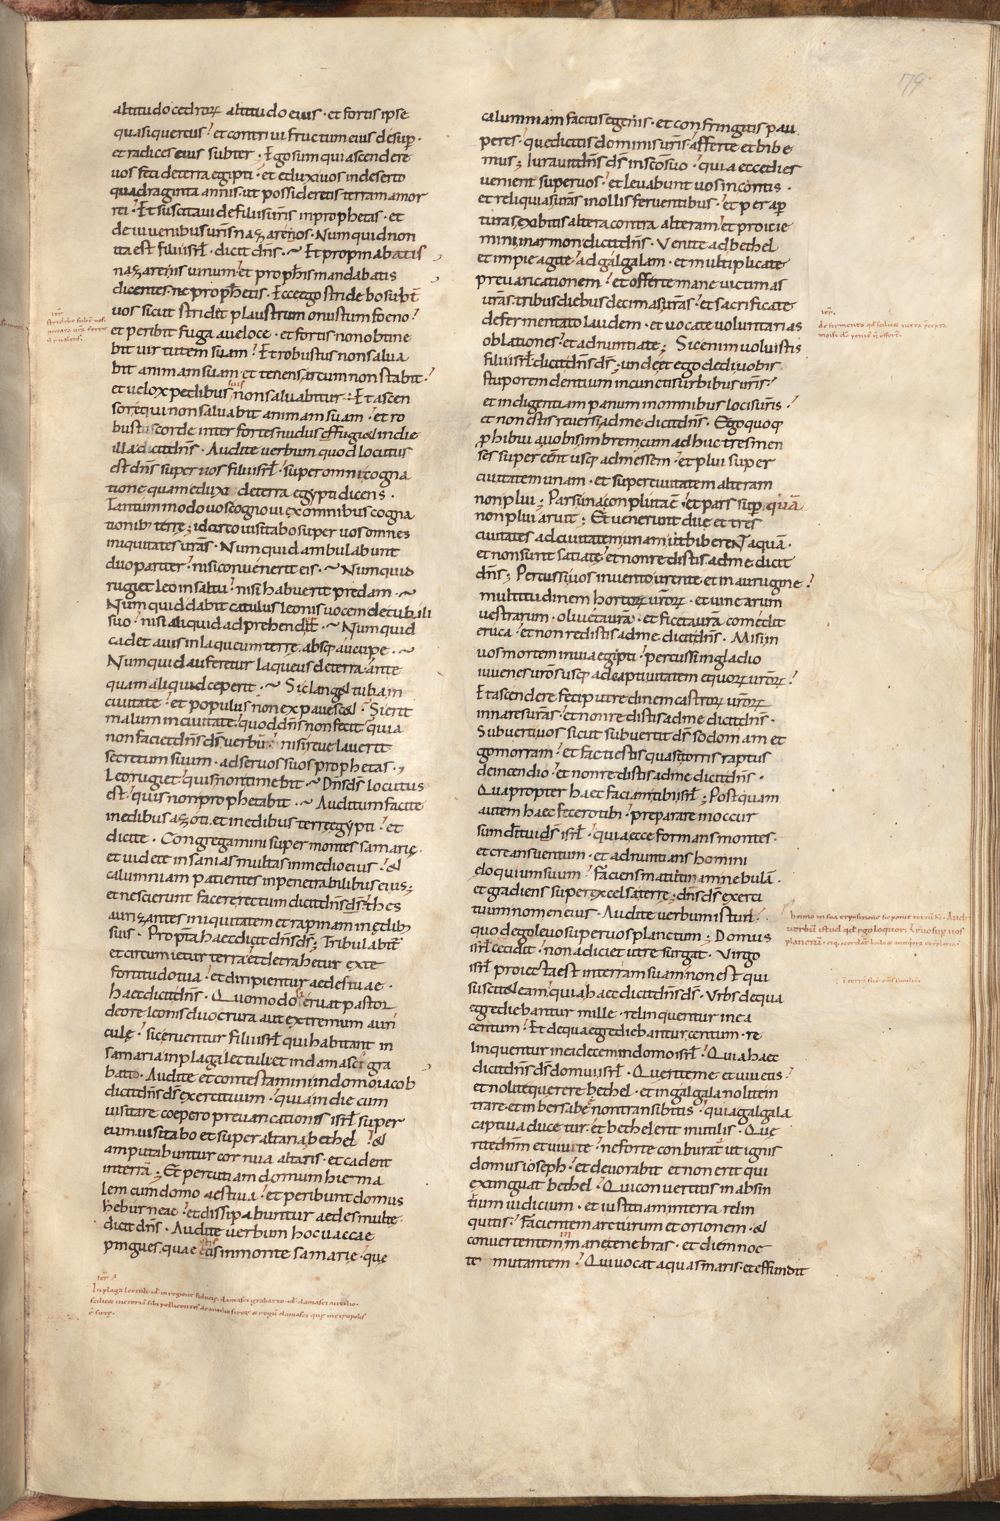 179
altitudo cedrorꝝ altitudo eius · et fortis ipse
quasi quercus · et contriui fructum eius desup̄ ·
et radices eius subter · Ego sum qui ascendere
uos feci de terra egipti · et eduxi uos in deserto
quadraginta annis · ut possideretis terram amor
rei · Et suscitaui de filiis ur̄is in prophetas · et
de iuuenibus ur̄is nazarenos · Numquid non
ita est filii isrl̄ · dicit dn̄s · Et propinabatis
nazareis uinum et proph̄is mandabatis
dicentes · ne prophetis · Ecce ego stridebo subt̄
uos sicut stridet plaustrum onustum foeno ·
et peribit fuga a ueloce · et fortis non obtine
bit uirtutem suam · Et robustus non salua
bit animam suam et tenens arcum non stabit ·
et uelox pedibus suis non saluabitur · Et ascen
sor equi non saluabit animam suam · et ro
bustus corde inter fortes nudus effugiet in die
illa dicit dn̄s · Audite uerbum quod locutus
est dn̄s super uos filii isrl̄ · super omni cogna
tione quam eduxi de terra egypti dicens ·
Tantummodo uos cognoui ex omnibus cogna
tionib; terre ; idcirco uisitabo super uos omnes
iniquitates ur̄as · Numquid ambulabunt
duo pariter · nisi conuenerit eis · Numquid
rugiet leo in saltu · nisi habuerit predam ·
Numquid dabit catulus leonis uocem de cubili
suo · nisi aliquid adprehenderit · Numquid
cadet auis in laqueum terre absq; aucupe ·
Numquid auferetur laqueus de terra · ante
quam aliquid ceperit · Si clanget tuba in
ciuitate · et populus non expauescet · Si erit
malum in ciuitate · quod dn̄s non fecit · quia
non faciet dn̄s ds̄ uerbū · nisi reuelauerit
secretum suum · ad seruos suos prophetas ·
Leo rugiet · quis non timebit · Dn̄s ds̄ locutus
est · quis non prophetabit · Auditum facite
in edibus azoti · et in edibus terre egypti · et
dicite · Congregamini super montes samarie ·
et uidete insanias multas in medio eius · et
calumniam patientes in penetrabilibus eius ;
et nescierunt facere rectum dicit dn̄s ds̄ · thes
aurizantes iniquitatem et rapinam in edib;
suis · Propt̄a haec dicit dn̄s ds̄ ; Tribulabit̄
et circumietur terra et detrahetur ex te
fortitudo tua · et diripientur aedes tuae ·
Haec dicit dn̄s · Quomodo si eruat pastor
de ore leonis duo crura aut extremum auri
cule · sic eruentur filii isrl̄ qui habitant in
samaria in plaga lectuli et in damasci gra
batto · Audite et contestamini in domo iacob
dicit dn̄s ds̄ exercituum · quia in die cum
uisitare coepero preuaricationes isrl̄ super
eum uisitabo et super altaria bethel · et
amputabuntur cornua altaris · et cadent
in terrā ; Et percutiam domum hiema
lem cum domo aestiua · et peribunt domus
heburneae · et dissipabuntur aedes multe ·
dicit dn̄s · Audite uerbum hoc uaccae
pingues · quae estis in monte samarie · que
calumniam facitis egenis · et confringitis pau
peres · que dicitis dominis ur̄is · afferte et bibe
mus ; Iurauit dn̄s ds̄ in sc̄o suo · quia ecce dies
uenient super uos · et leuabunt uos in contis ·
et reliquias ur̄as in ollis feruentibus · et per ap̄
turas exibitis altera contra alteram et proicie
mini in armon dicit dn̄s · Venite ad bethel
et impie agite · ad galgalam · et multiplicate
preuaricationem · et offerte mane uictimas
ur̄as · tribus diebus decimas ur̄as · et sacrificate
de fermentato laudem · et uocate uoluntarias
oblationes · et adnuntiate ; Sic enim uoluistis
filii isrl̄ dicit dn̄s ds̄ · unde et ego dedi uobis
stuporem dentium in cunctis urbibus ur̄is ·
et indigentiam panum in omnibus locis ur̄is ·
et non estis reuersi ad me dicit dn̄s · Ego quoq;
p̄hibui a uobis imbrem cum adhuc tres men
ses super eēnt usq; ad messem · et plui super
ciuitatem unam · et super ciuitatem alteram
non plui ; Pars una conpluta ē · et pars sup̄ quā
non plui aruit ; Et uenerunt due et tres
ciuitates ad ciuitatem unam ut biberent aquam ·
et non sunt satiate · et non redistis ad me dicit
dn̄s ; Percussi uos in uento urente et in aurugine ·
multitudinem hortorꝝ ur̄orꝝ · et uinearum
uestrarum · oliueta ur̄a · et ficeta ur̄a comedit
eruca · et non redistis ad me dicit dn̄s · Misi in
uos mortem in uia egipti · percussi in gladio
iuuenes ur̄os usq; ad captiuitatem equorꝝ ur̄orꝝ ·
Et ascendere feci putredinem castrorꝝ ur̄orꝝ
in nares ur̄as · et non redistis ad me dicit dn̄s ·
Subuerti uos sicut subuertit ds̄ sodomam et
gomorram · et facti estis quasi torris raptus
de incendio · et non redistis ad me dicit dn̄s ·
Quapropter haec faciam tibi isrl̄ ; Postquam
autem haec fecero tibi · preparare in occur
sum dī tui ds̄ isrl̄ · quia ecce formans montes ·
et creans uentum · et adnuntians homini
eloquium suum · faciens matutinam nebulā ·
et gradiens super excelsa terre ; dn̄s ds̄ exerci
tuum nomen eius · Audite uerbum istud ·
quod ego leuo super uos planctum ; Domus
isrl̄ cecidit · non adiciet ut resurgat · Virgo
isrl̄ proiecta est in terram suam non est qui
suscitet eam · quia haec dicit dn̄s ds̄ · Vrbs de qua
egrediebantur mille · relinquentur in ea
centum · Et de qua egrediebantur centum · re
linquentur in ea decem in domo isrl̄ · Quia haec
dicit dn̄s ds̄ domui isrl̄ · Querite me et uiuetis ·
et nolite querere bethel · et in galgala nolite in
trare · et in bersabee non transibitis · quia galgala
captiua ducetur · et bethel erit inutilis · Que
rite dn̄m et uiuite · ne forte conburat̄ ut ignis
domus ioseph · et deuorabit et non erit qui
extinguat bethel · Qui conuertitis in absin
tium iudicium · et iustitiam in terra relin
quitis · facientem arcturum et orionem · et
conuertentem in mane tenebras · et diem noc
te mutantem · Qui uocat aquas maris · et effundit